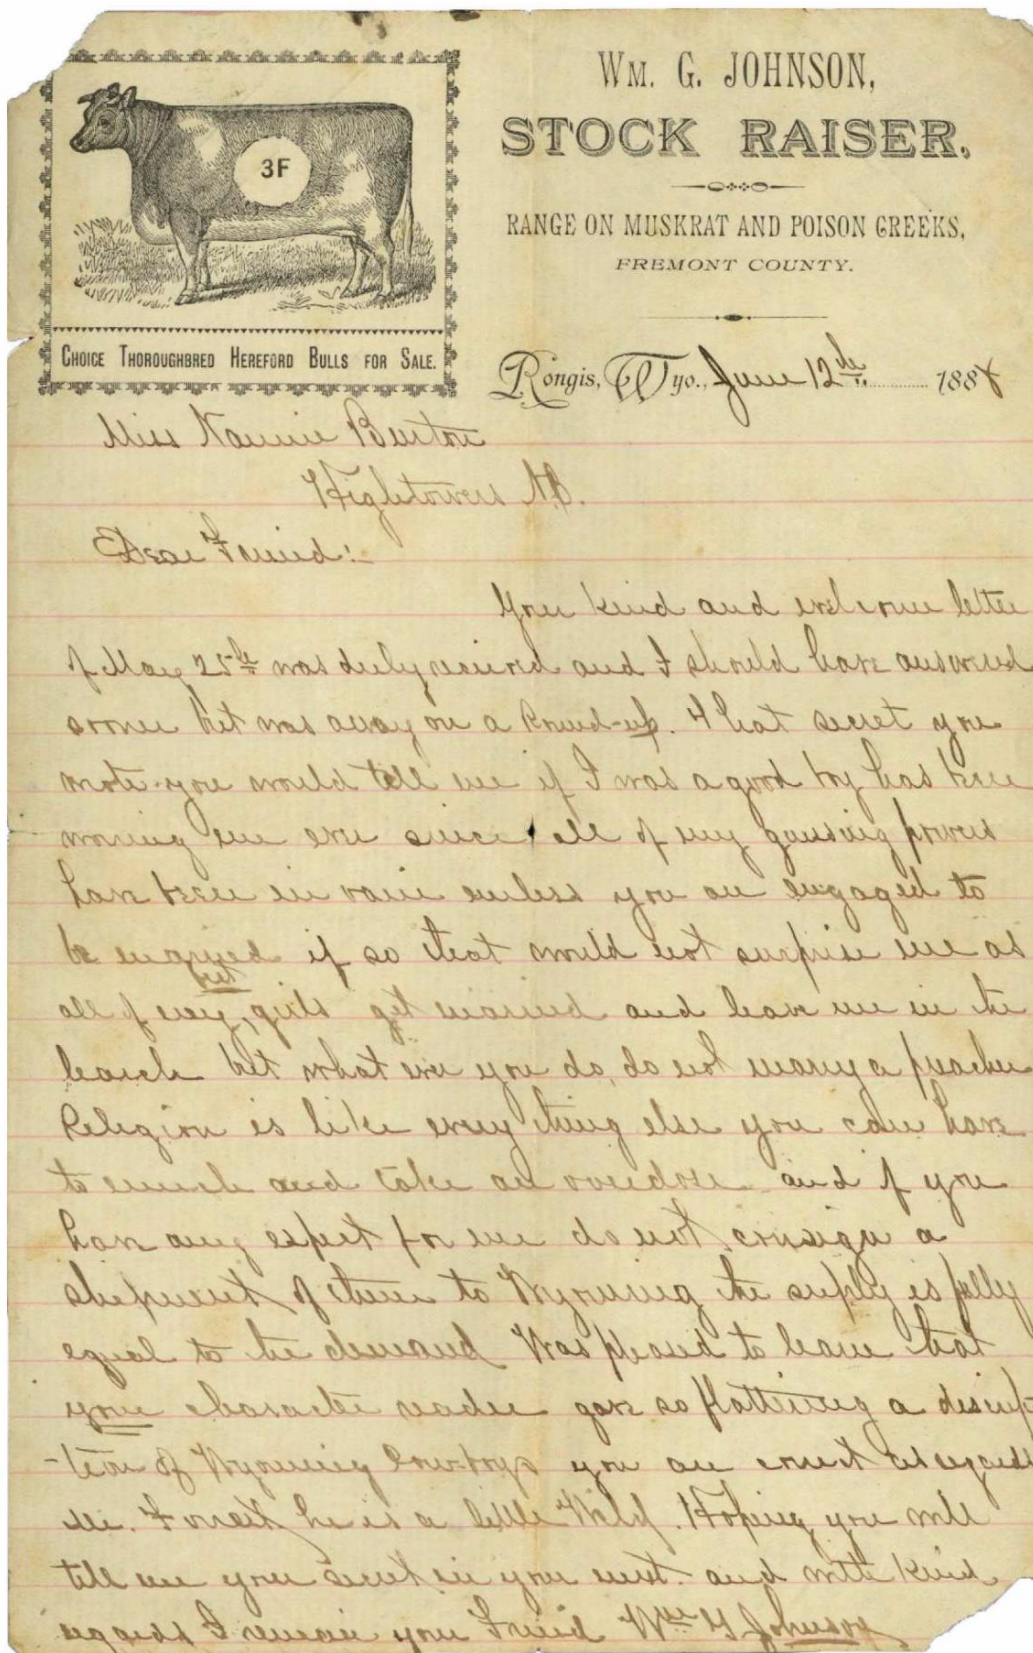 WM. G. JOHNSON,
STOCK RAISER.
RANGE ON MUSKRAT AND POISON CREEKS,
FREMONT COUNTY.
3F
CHOICE THOROUGHBRED HEREFORD BULLS FOR SALE.
Rongis, Wyo., June 12th 1888
Miss Nannie Burton
Hightowers N.C.
Dear Friend:-
Your kind and welcome letter
of May 25th was duly received and I should have answered
sooner but was away on a Round-up. That secret you
wrote you would tell me if I was a good boy has been
worrying me ever since all of my guessing powers
have been in vain unless you are engaged to
be married if so that would not surprise me as
all of my best girls get married and leave me in the
lurch but what ever you do, do not marry a preacher
Religion is like every thing else you can have
to much and take an overdose and if you
have any respect for me do not consign a
shipment of them to Wyoming the supply is fully
equal to the demand Was pleased to learn that
your character reader gave so flattering a descrip
-tion of Wyoming Cow-boys you are correct as regards
Mr. Forest he is a little Wild. Hoping you will
tell me your secret in your next. and with kind
regards I remain your Friend Wm G Johnson